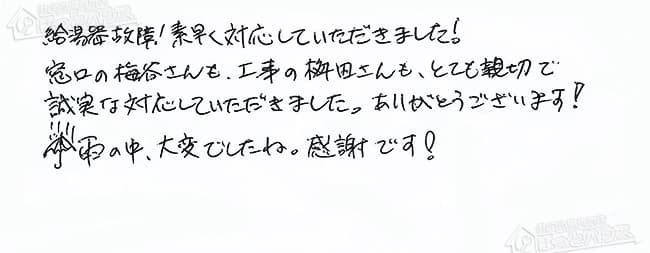 給湯器故障！素早く対応していただきました！
窓口の梅谷さんも、工事の桝田さんも、とても親切で
誠実な対応していただきました。ありがとうございます！
雨の中、大変でしたね。感謝です！